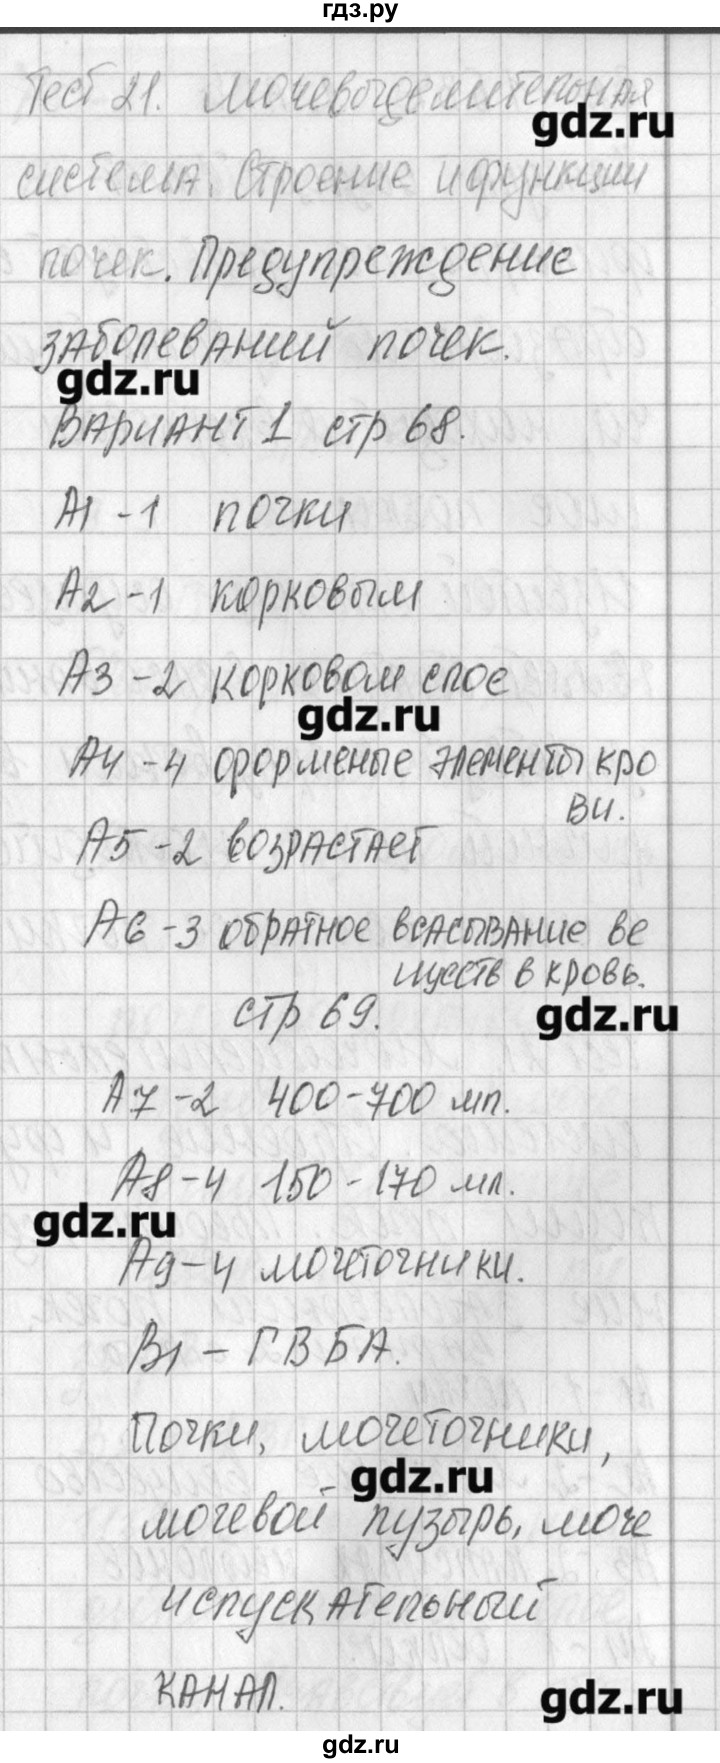 гдз.ру
Тест 21. Мочевыделительная
gdz.ru
система. Строение и функции
почек. Предупреждение
заболеваний почек.
gdz.ru
Вариант 1 стр 68.
А1 - 1 почки
А2 - 1 корковым
А3 - 2 корковом слое
gdz.ru
А4 - 4 форменые элементы кро
ви.
А5 - 2 возрастает
А6 - 3 обратное всасывание ве
ществ в кровь.
стр 69.
gdz.ru
А7 - 2 400-700 мл.
А8 - 4 150-170 мл.
gdz.ru
А9 - 4 мочеточники.
В1 - ГВБА.
Почки, мочеточники,
gdz.ru
мочевой пузырь, моче
испускательный
канал.
gdz.ru
gdz.ru